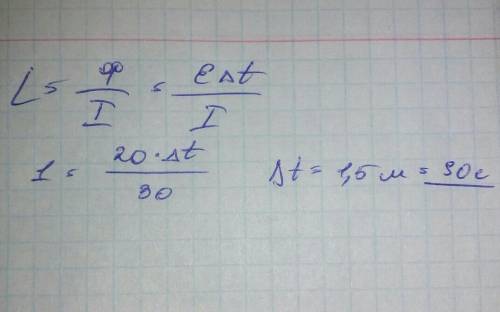 L = Ф/I = ℰΔt/I
1 = 20·Δt/30 Δt = 1,5 м = 90 с